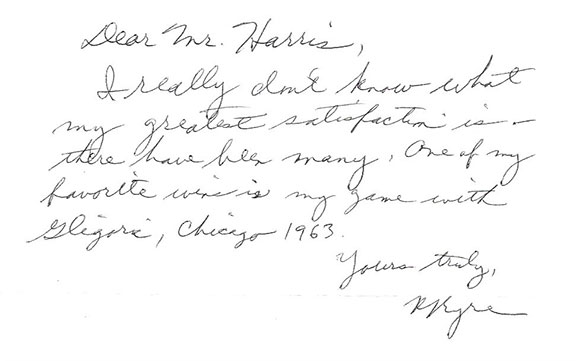 Dear Mr. Harris,
I really don't know what
my greatest satisfaction is –
there have been many. One of my
favorite wins is my game with
Gligoric, Chicago 1963.
Yours truly,